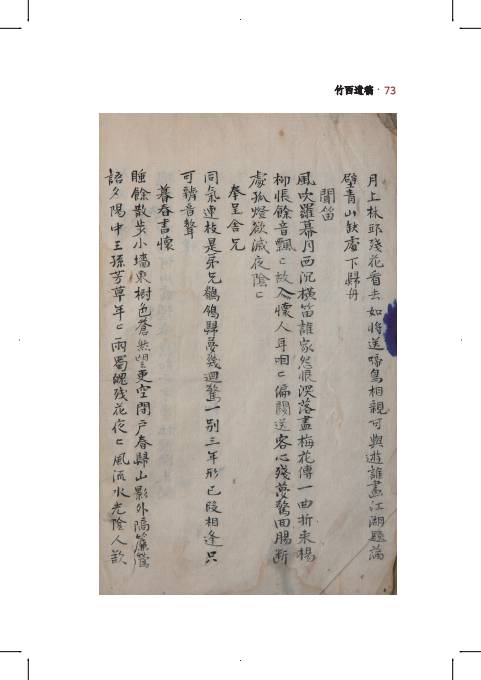 竹西遺稿 · 73
月上林邱殘花看去如將送啼鳥相親可與遊誰畫江湖題滿
壁青山缺處下歸舟
聞笛
風吹羅幕月西沉橫笛誰家怨恨深落盡梅花傳一曲折來楊
柳悵餘音飄〻故入懷人耳咽〻偏關送客心殘夢驚回腸斷
處孤燈欲滅夜陰〻
奉呈舍兄
同氣連枝是弟兄鶺鴒歸夢幾迴驚一別三年形已段相逢只
可辨音聲
暮春書懷
睡餘散步小墻東樹色蒼然望更空閉戶春歸山影外隔簾鶯
語夕陽中王孫芳草年〻雨蜀魄殘花夜〻風流水光陰人欲